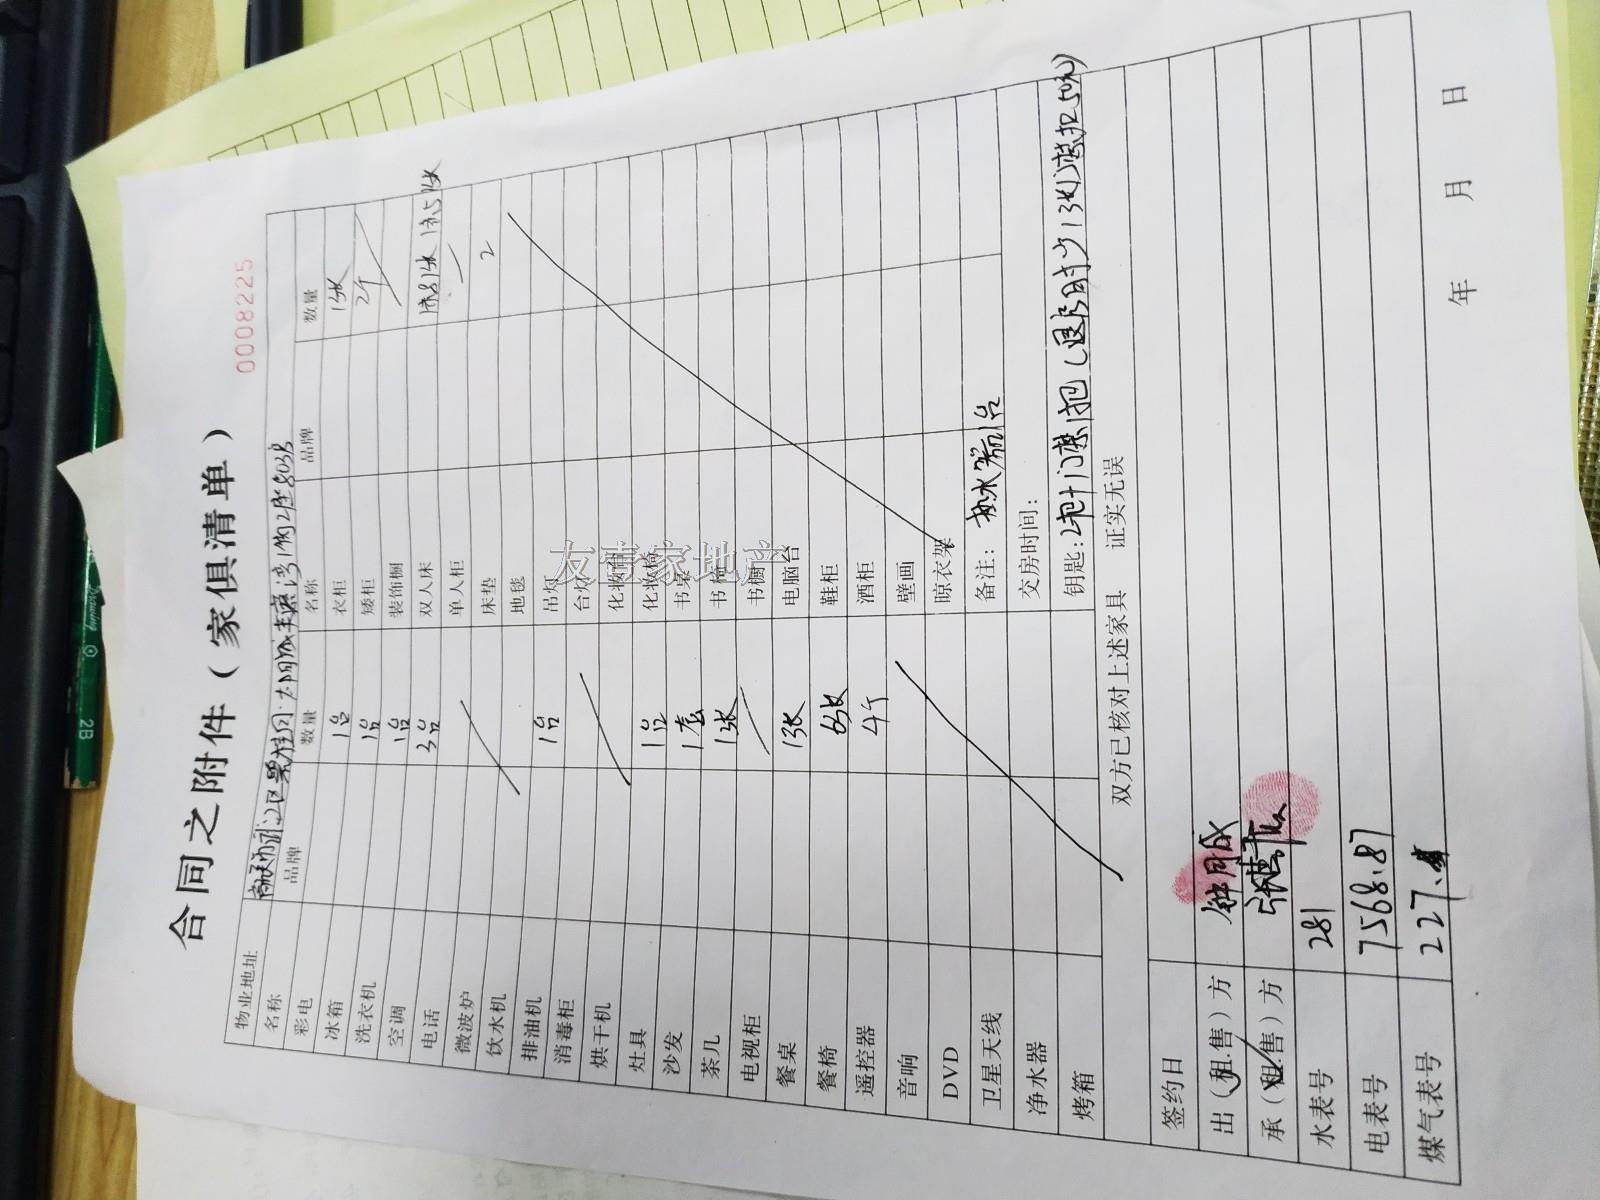 合同之附件（家俱清单）
0008225
物业地址
名称 品牌 数量 名称 品牌 数量
彩电 1台 衣柜 1张
冰箱 1台 矮柜 2个
洗衣机 1台 装饰橱
空调 3台 双人床
电话 单人柜
微波炉 床垫 2
饮水机 地毯
排油机 1台 吊灯
消毒柜 台灯
烘干机 化妆台
灶具 1台 化妆椅
沙发 1套 书桌
茶几 1张 书椅
电视柜 书橱
餐桌 1张 电脑台
餐椅 6张 鞋柜
遥控器 4个 酒柜
音响 壁画
DVD 晾衣架
卫星天线 备注：热水器1台
净水器 交房时间：
烤箱 钥匙：2把+门禁1把（退房时少1张门禁扣50元）
双方已核对上述家具 证实无误
签约日
出（租.售）方
承（租.售）方
水表号 281
电表号 7568.87
煤气表号 227.
年 月 日
友壹家地产
2B